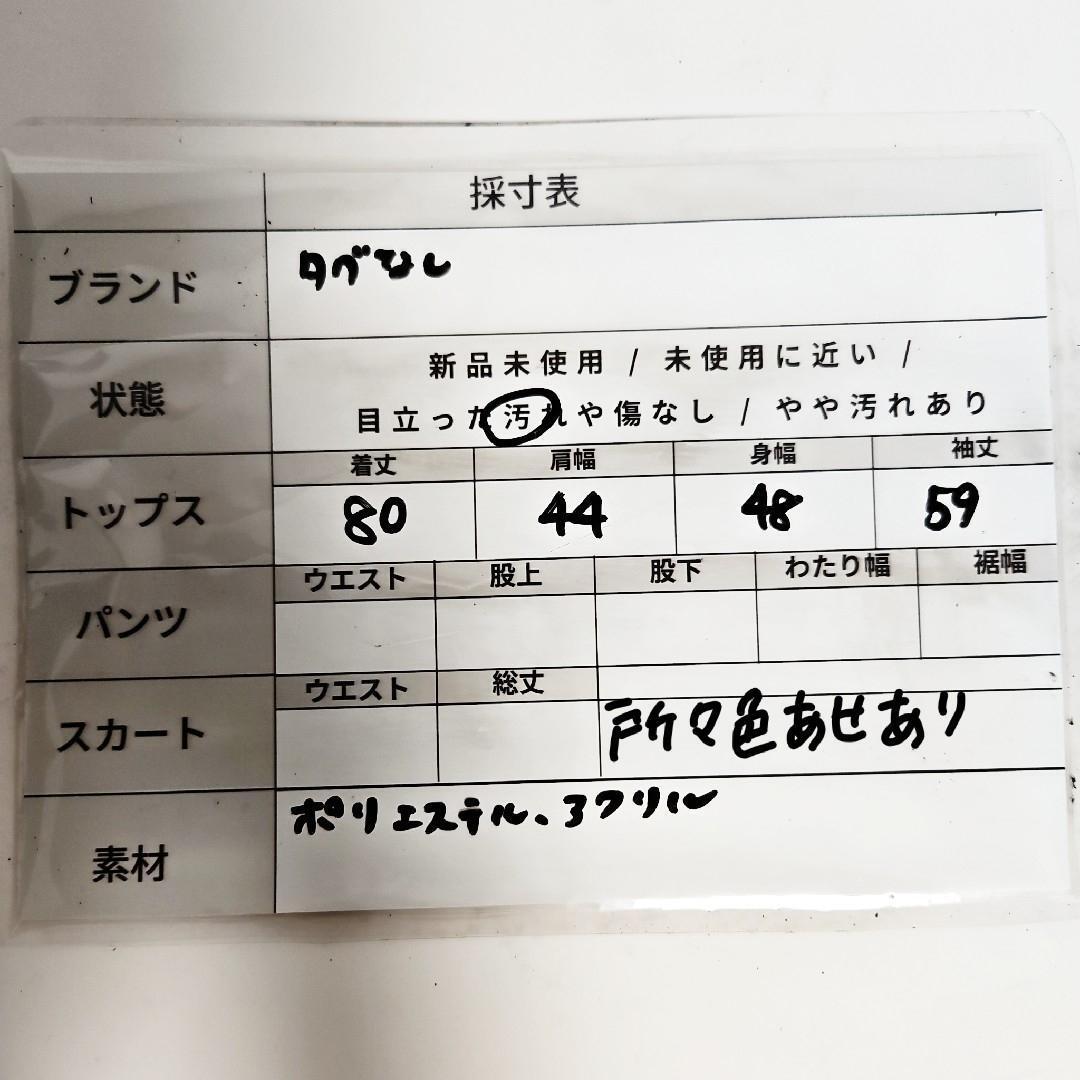 採寸表
ブランド
タグなし
状態
新品未使用 / 未使用に近い /
目立った汚れや傷なし / やや汚れあり
トップス
着丈 肩幅 身幅 袖丈
80 44 48 59
パンツ
ウエスト 股上 股下 わたり幅 裾幅
スカート
ウエスト 総丈
所々色あせあり
素材
ポリエステル、アクリル